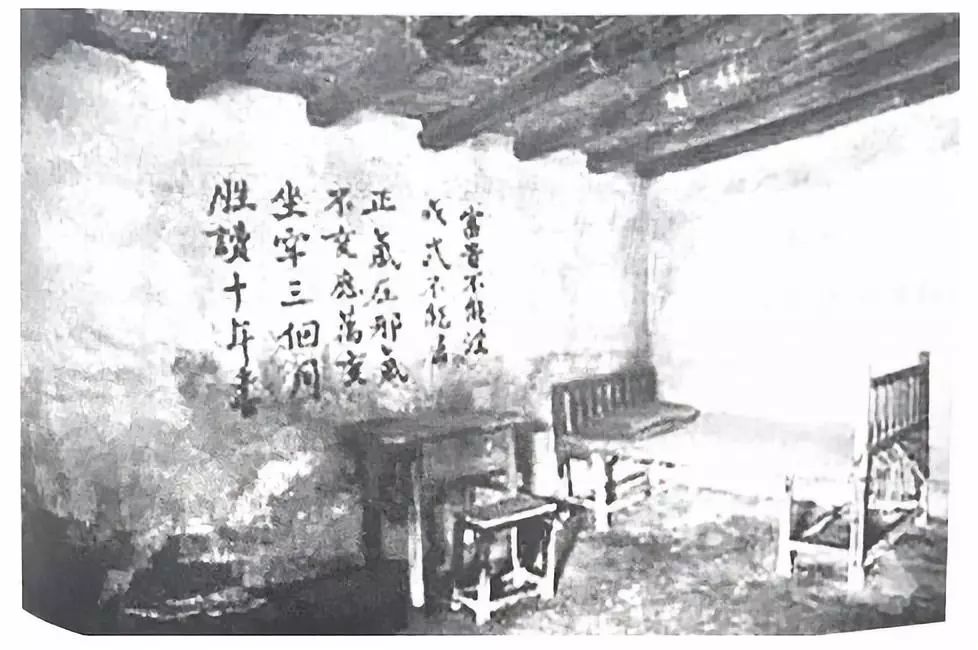 富貴不能淫
威武不能屈
正氣压邪氣
不变应萬变
坐牢三個月
胜讀十年書